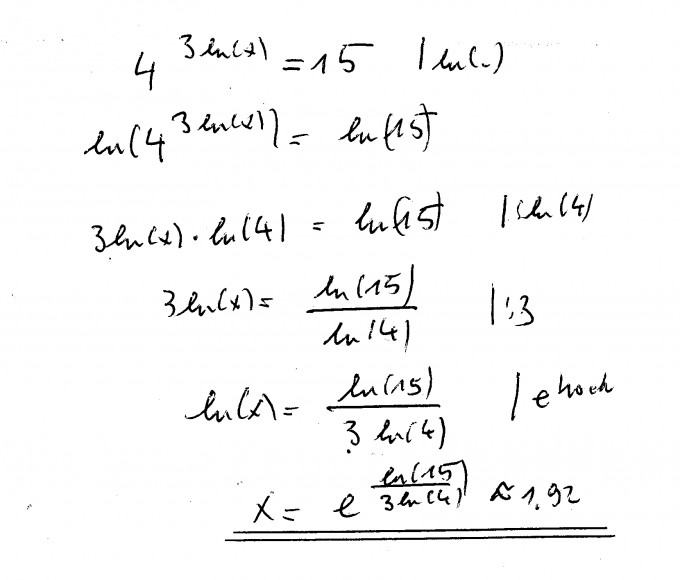 4^(3ln(x)) = 15 | ln(..)
ln(4^(3ln(x))) = ln(15)
3ln(x) · ln(4) = ln(15) | : ln(4)
3ln(x) = ln(15) / ln(4) | : 3
ln(x) = ln(15) / 3 ln(4) | e hoch
x = e^(ln(15) / 3ln(4)) ≈ 1,92